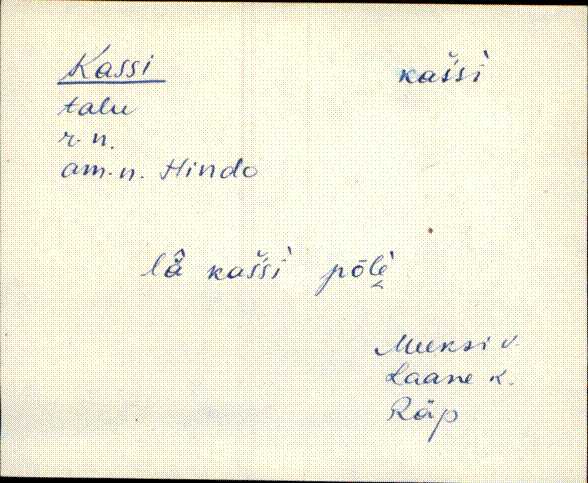 Kassi
kaššì̬
talu
r. n.
am. n. Hindo
lǟ̂ kaššì̬ pōlè̬
Meeksi v.
Laane k.
Räp